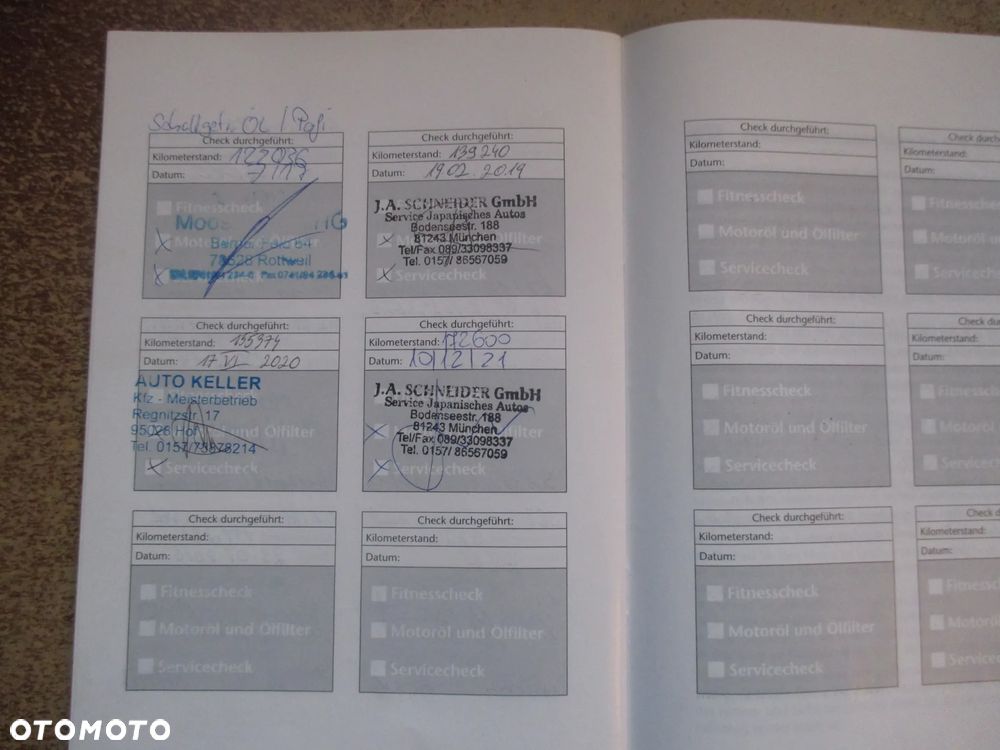 Schaltgetr. ÖL /
Check durchgeführt:
Kilometerstand: 122036
Datum:
Fitnesscheck
Berner Feld 64
78628 Rottweil
Check durchgeführt:
Kilometerstand: 139240
Datum: 19.02.2019
J.A. SCHNEIDER GmbH
Service Japanisches Autos
Bodenseestr. 188
81243 München
Tel/Fax 089/33098337
Tel. 0157/ 86567059
Servicecheck
Check durchgeführt:
Kilometerstand: 155374
Datum: 17 VI 2020
AUTO KELLER
Kfz - Meisterbetrieb
Regnitzstr. 17
95026 Hof
und Ölfilter
Tel. 0157/73878214
Servicecheck
Check durchgeführt:
Kilometerstand: 172600
Datum: 10/12/21
J.A. SCHNEIDER GmbH
Service Japanisches Autos
Bodenseestr. 188
81243 München
Tel/Fax 089/33098337
Tel. 0157/ 86567059
Servicecheck
Check durchgeführt:
Kilometerstand:
Datum:
Fitnesscheck
Motoröl und Ölfilter
Servicecheck
Check durchgeführt:
Kilometerstand:
Datum:
Fitnesscheck
Motoröl und Ölfilter
Servicecheck
Check durchgeführt:
Kilometerstand:
Datum:
Fitnesscheck
Motoröl und Ölfilter
Servicecheck
Check durch
Kilometerstand:
Datum:
Fitnessch
Motoröl u
Servicech
Check durchgeführt:
Kilometerstand:
Datum:
Fitnesscheck
Motoröl und Ölfilter
Servicecheck
Check du
Kilometerstand:
Datum:
Fitnessc
Motoröl
Servicec
Check durchgeführt:
Kilometerstand:
Datum:
Fitnesscheck
Motoröl und Ölfilter
Servicecheck
Check d
Kilometerstand:
Datum:
Fitness
Motorö
Service
OTOMOTO